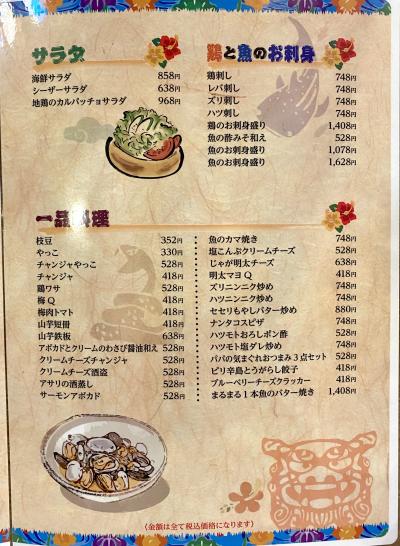 サラダ
海鮮サラダ 858円
シーザーサラダ 638円
地鶏のカルパッチョサラダ 968円
鶏と魚のお刺身
鶏刺し 748円
レバ刺し 748円
ズリ刺し 748円
ハツ刺し 748円
鶏のお刺身盛り 1,408円
魚の酢みそ和え 528円
魚のお刺身盛り 1,078円
魚のお刺身盛り 1,628円
一品料理
枝豆 352円
やっこ 330円
チャンジャやっこ 528円
チャンジャ 418円
鶏ワサ 528円
梅Q 418円
梅肉トマト 418円
山芋短冊 418円
山芋鉄板 638円
アボカドとクリームのわさび醤油和え 528円
クリームチーズチャンジャ 528円
クリームチーズ酒盗 528円
アサリの酒蒸し 528円
サーモンアボカド 528円
魚のカマ焼き 748円
塩こんぶクリームチーズ 528円
じゃが明太チーズ 638円
明太マヨQ 418円
ズリニンニク炒め 748円
ハツニンニク炒め 748円
セセリもやしバター炒め 880円
ナンタコスピザ 748円
ハツモトおろしポン酢 528円
ハツモト塩ダレ炒め 748円
パパの気まぐれおつまみ3点セット 528円
ピリ辛島とうがらし餃子 418円
ブルーベリーチーズクラッカー 418円
まるまる1本魚のバター焼き 1,408円
(金額は全て税込価格になります)